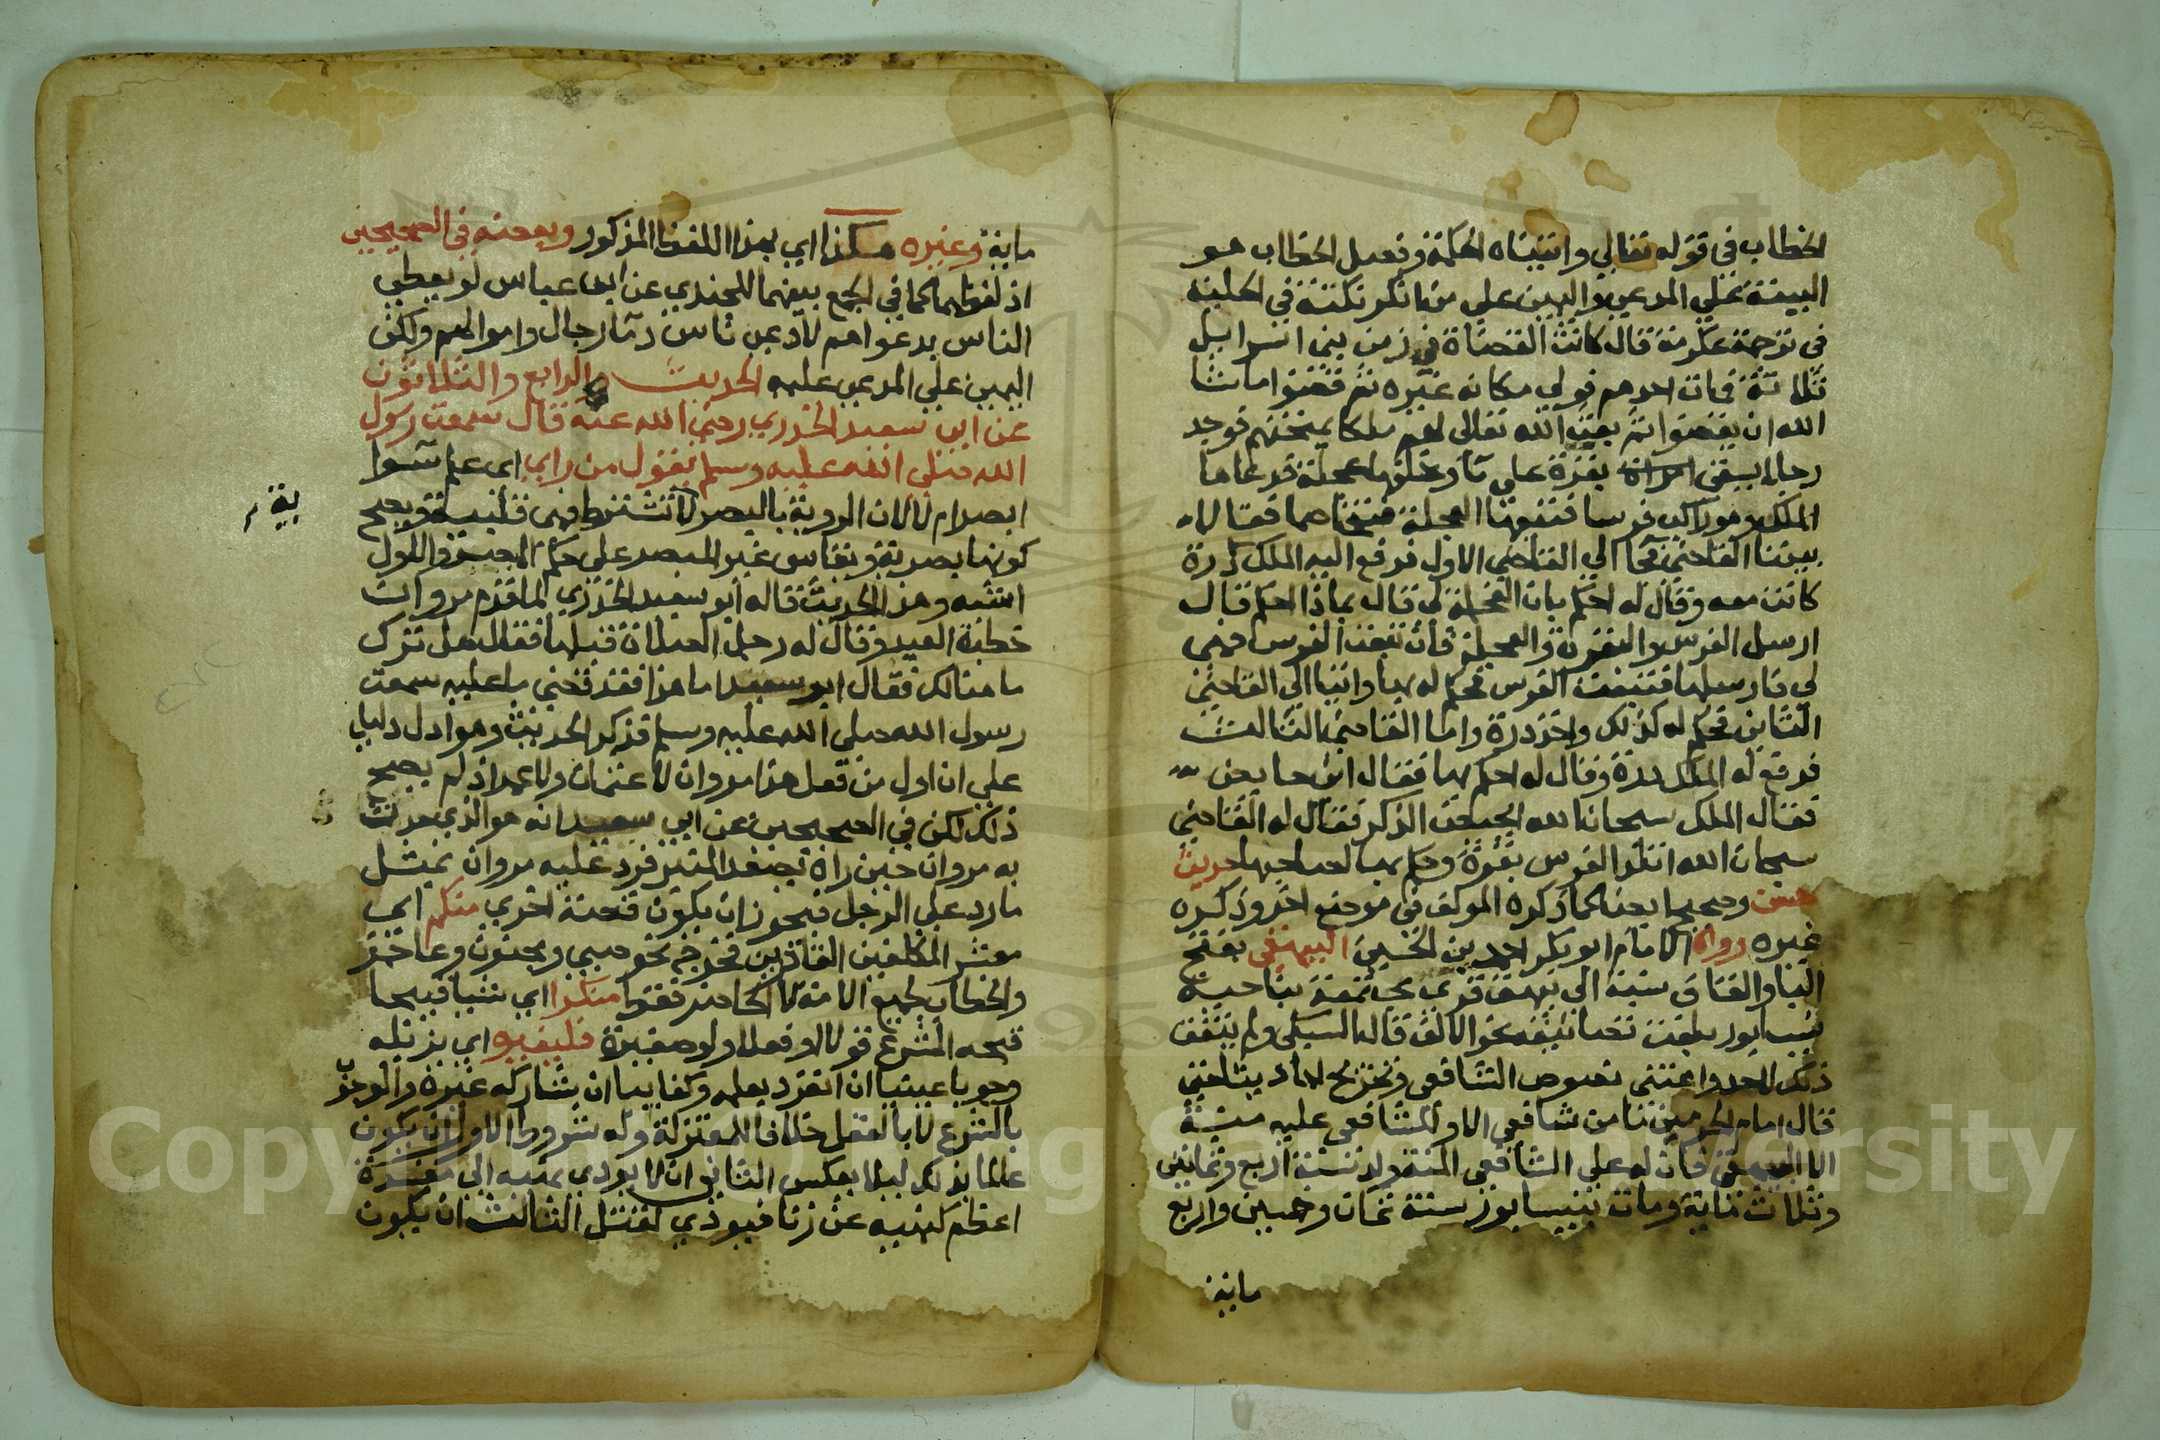 الخطاب في قوله تعالي واتيناه الحكمة وفصل الخطاب هو
البينة علي المدعي واليمين علي من انكر نكتة في الحلية
في ترجمة عكرمة قال كانت القضاة في زمن بني اسرايل
ثلاثة فمات احدهم فولي مكانه غيره ثم قضوا ماشا
الله ان يقضوا ثم بعث الله تعالي لهم ملكا يمتحنهم فوجد
رجلا يسقي بقرة علي ما وخلفها عجلة فدعاها
الملك وهو راكب فرسا فتبعتها العجلة فتخاصما فقالا
بيننا القاضي فجا الي القاضي الاول فدفع اليه الملك درة
كانت معه وقال له احكم بان العجلة لي قال بماذا احكم قال
ارسل الفرس والبقرة والعجلة فان تبعت الفرس فهي
لي فارسلها فتبعت الفرس فحكم له بها واتيا الي القاضي
الثاني فحكم له كذلك واخذ درة واما القاضي الثالث
فدفع له الملك درة وقال له احكم بها فقال اني حايض
فقال الملك سبحان الله ايحيض الذكر فقال له القاضي
سبحان الله اتلد الفرس بقرة وحكم بها لصاحبها حديث
حسن وصحيح ايضا كما ذكره المولف في موضع اخر وذكره
غيره رواه الامام ابو بكر احمد بن الحسين البيهقي بفتح
البا والقاف نسبة الي بيهق قري مجتمعة بناحية
نيسابور بلغت تصانيفه نحو الالف قاله السبكي ولم يتفق
ذلك لاحد واعتني نصوص الشافعي وتخريج احاديثها حتي
قال امام الحرمين ما من شافعي الا وللشافعي عليه منة
الا البيهقي فان له علي الشافعي المنة ولد سنة اربع وثمانين
وثلاث ماية ومات بنيسابور سنة ثمان وخمسين واربع
ماية
ماية وغيره هكذا اي بهذا اللفظ المذكور وبعضه في الصحيحين
اذ لفظهما كما في الجمع بينهما للحميدي عن ابن عباس لو يعطي
الناس بدعواهم لادعي ناس دما رجال واموالهم ولكن
اليمين علي المدعي عليه الحديث الرابع والثلاثون
عن ابي سعيد الخدري رضي الله عنه قال سمعت رسول
الله صلي الله عليه وسلم يقول من راي اي علم سوا
ابصرام لا لان الروية بالبصر لا تشترط فهي قلبية ويصح
بقية م
كونها بصرية ويقاس غير المبصر علي حكم المبصر والاول
اشبه وهذا الحديث قاله ابو سعيد الخدري لما قدم مروان
خطبة العيد وقال له رجل الصلاة قبلها فقال له قد ترك
ما هنالك فقال ابو سعيد اما هذا فقد قضي ما عليه سمعت
رسول الله صلي الله عليه وسلم فذكر الحديث وهو ادل دليل
علي ان اول من فعل هذا مروان لا عثمان ولا عمر اذ لم يصح
ذلك لكن في الصحيحين عن ابي سعيد انه هو الذي جذب
به مروان حين راه يصعد المنبر فرد عليه مروان بمثل
مارد علي الرجل فيجوز ان يكون قصة اخري منكم اي
معشر المكلفين القادرين فخرج نحو صبي ومجنون وعاجز
والخطاب لجميع الامة لا الحاضر فقط منكرا اي شيا قبيحا
قبحه الشرع قولا او فعلا ولو صغيرة فليغيره اي يزيله
وجوبا عينيا ان انفرد بعلمه وكفاييا ان يشاركه غيره والوجوب
بالشرع لا بالعقل خلافا للمعتزلة وله شروط الاول ان يكون
عالما بذلك ليلا يعكس الثاني ان لا يودي نهيه الي مفسدة
اعظم كنهيه عن زنا فيودي لقتل الثالث ان يكون